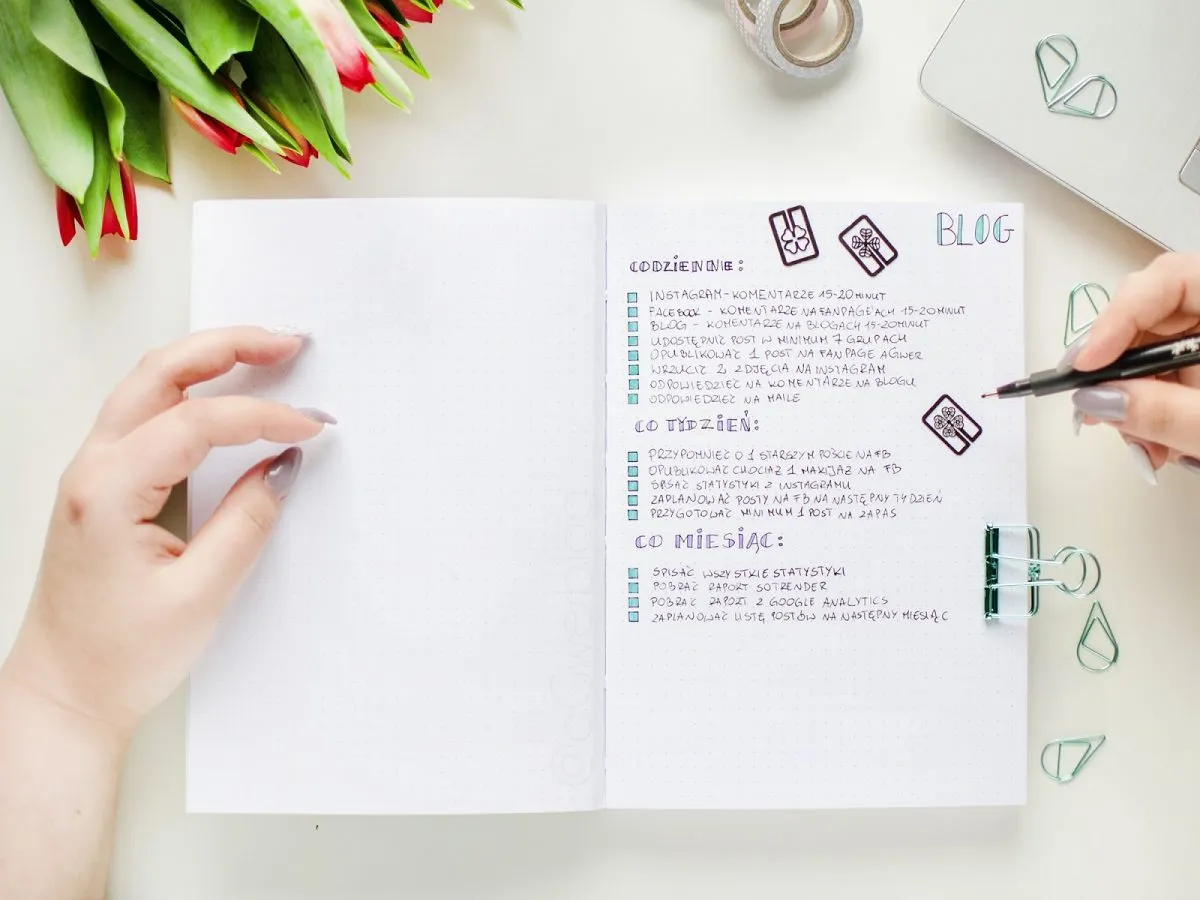 BLOG
CODZIENNIE:
INSTAGRAM - KOMENTARZE 15-20 MINUT
FACEBOOK - KOMENTARZE NA FANPAGE'ACH 15-20 MINUT
BLOG - KOMENTARZE NA BLOGACH 15-20 MINUT
UDOSTĘPNIĆ POST W MINIMUM 7 GRUPACH
OPUBLIKOWAĆ 1 POST NA FANPAGE AGWER
WRZUCIĆ 2 ZDJĘCIA NA INSTAGRAM
ODPOWIEDZIEĆ NA KOMENTARZE NA BLOGU
ODPOWIEDZIEĆ NA MAILE
CO TYDZIEŃ:
PRZYPOMNIEĆ O 1 STARSZYM POŚCIE NA FB
OPUBLIKOWAĆ CHOCIAŻ 1 MAKIJAŻ NA FB
SPISAĆ STATYSTYKI Z INSTAGRAMU
ZAPLANOWAĆ POSTY NA FB NA NASTĘPNY TYDZIEŃ
PRZYGOTOWAĆ MINIMUM 1 POST NA ZAPAS
CO MIESIĄC:
SPISAĆ WSZYSTKIE STATYSTYKI
POBRAĆ RAPORT SOTRENDER
POBRAĆ RAPORT Z GOOGLE ANALYTICS
ZAPLANOWAĆ LISTĘ POSTÓW NA NASTĘPNY MIESIĄC